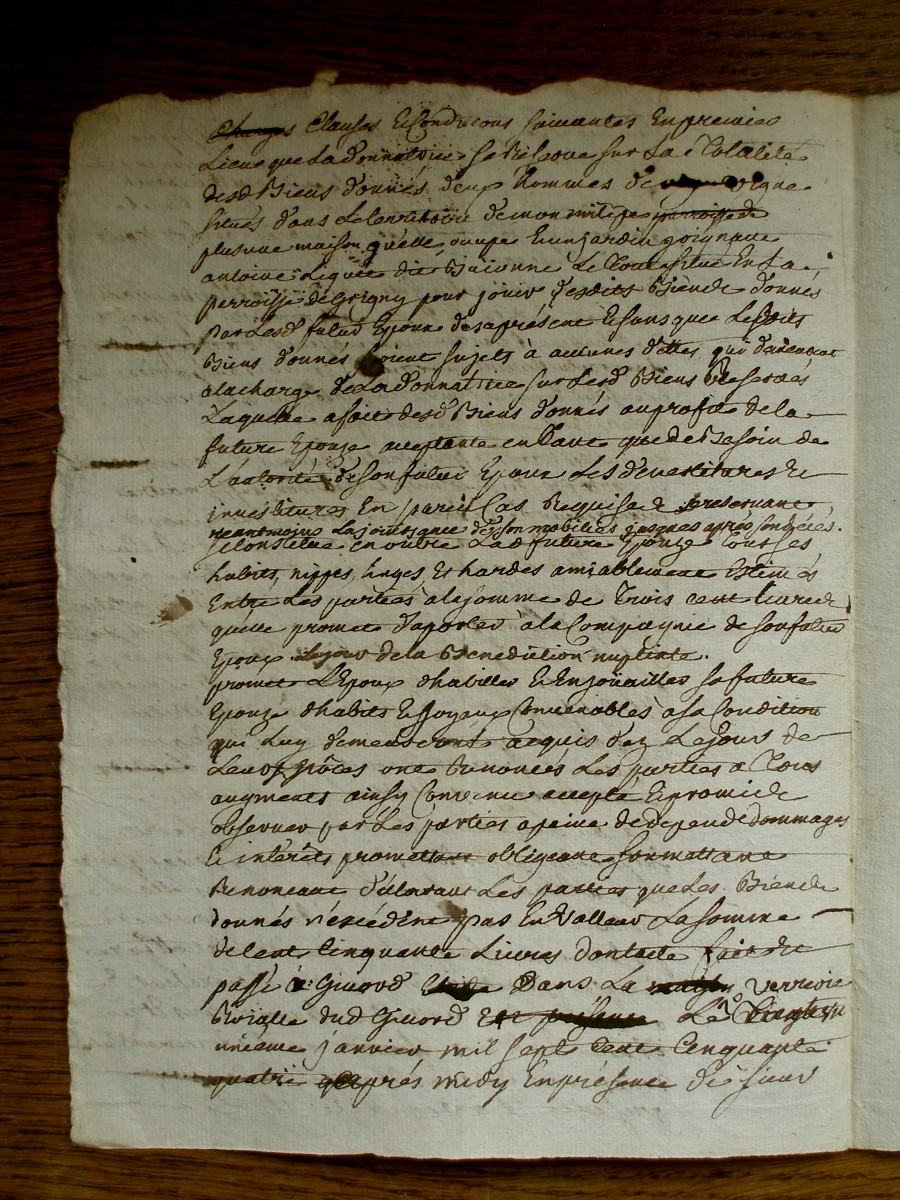 Charges Clauses Et Conditions suivantes En premier
Lieu que La donnatrice se Reserve sur La Totalité
desd Biens donnés deux hommes de vigne
situés dans Le territoire de monmilipe parroisse de
plus une maison qu'elle occupe Et un jardin joignant
antoine dit Le Tout situé En la
perroisse de Grigny pour jouir desdits Biens donnés
par Lesd futur Epoux des apresent Et sans que Lesdits
Biens donnés soient sujets à aucunes dettes qui
a la charge de La donnatrice sur Lesd Biens Reservés
Laquelle a fait desd Biens donnés au profit de la
future Epouze acceptante en Tant que de Besoin de
L'autorité de son futur Epoux Les devestitures Et
investitures En pareil Cas Requises se reservant
neantmoins La jouissance de son mobilier jusques apres son décès.
se Constitue en outre Lad future Epouze Tous ses
habits, nippes, linges, Et hardes amiablement Estimés
Entre Les parties à la somme de Trois cent livres
qu'elle promet d'aporter à la Compagnie de son futur
Epoux Le jour de la Benediction nuptiale.
promet L'Epoux d'habiller Et Enjoüailler sa future
Epouze d'habits Et Joyaux Convenables à sa Condition
qui Luy demeureront acquis dez Le jours de
Leurs nôces ont Renoncés Les parties a Tous
augments ainsy Convenu accepté Et promis
observer par Les parties a peine de depend dommages
Et intérêts promettant obligeant soumettant
Renonceant déclarant Les parties que Les Biens
donnés n'excédent pas En Valleur La somme
de Cent Cinquante Livres dont acte fait Et
passé à Givord Dans La maison verrerie
Roialle dud Givord En présence Le
unieme janvier mil sept cent Cinquante
quatre après midy En présence de sieur